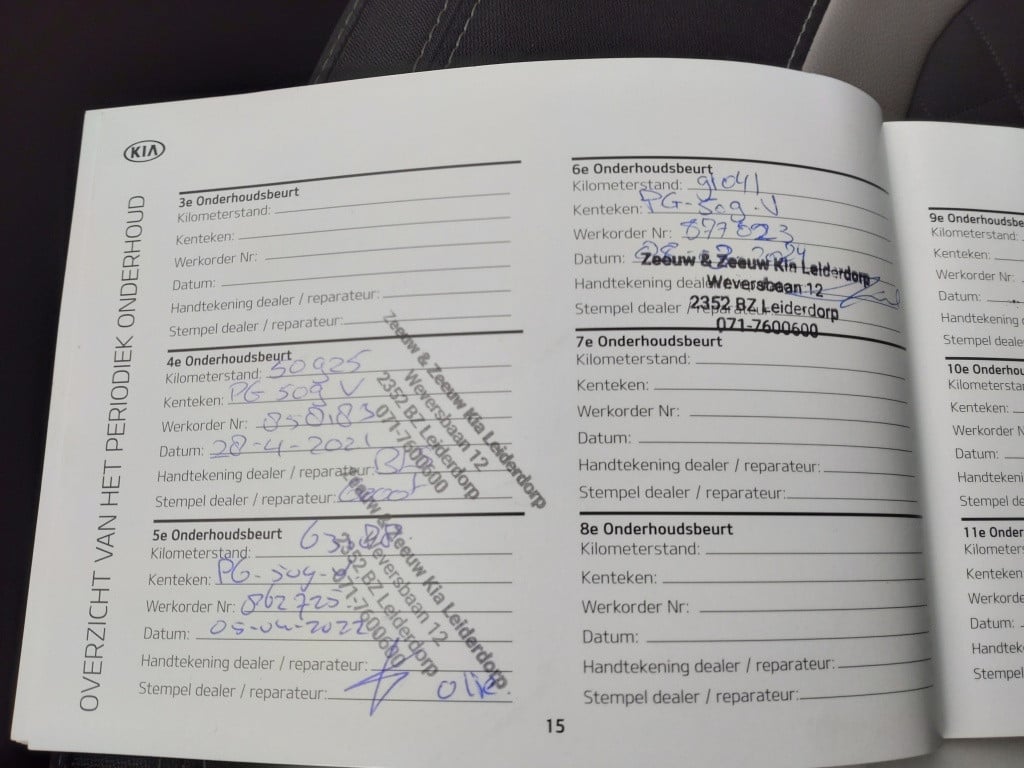 KIA
OVERZICHT VAN HET PERIODIEK ONDERHOUD
3e Onderhoudsbeurt
Kilometerstand:
Kenteken:
Werkorder Nr:
Datum:
Handtekening dealer / reparateur:
Stempel dealer / reparateur:
4e Onderhoudsbeurt
Kilometerstand: 50925
Kenteken: PG 509 V
Werkorder Nr: 858183
Datum: 28-4-2021
Handtekening dealer / reparateur:
Stempel dealer / reparateur:
Zeeuw & Zeeuw Kia Leiderdorp
Weversbaan 12
2352 BZ Leiderdorp
071-7600600
5e Onderhoudsbeurt
Kilometerstand:
Kenteken: PG-509-
Werkorder Nr: 862725
Datum: 05-04-2022
Handtekening dealer / reparateur:
Stempel dealer / reparateur: olie.
Zeeuw & Zeeuw Kia Leiderdorp
Weversbaan 12
2352 BZ Leiderdorp
071-7600600
6e Onderhoudsbeurt
Kilometerstand: 91041
Kenteken: PG-509-V
Werkorder Nr: 877823
Datum:
Handtekening dealer
Stempel dealer / reparateur:
Zeeuw & Zeeuw Kia Leiderdorp
Weversbaan 12
2352 BZ Leiderdorp
071-7600600
7e Onderhoudsbeurt
Kilometerstand:
Kenteken:
Werkorder Nr:
Datum:
Handtekening dealer / reparateur:
Stempel dealer / reparateur:
8e Onderhoudsbeurt
Kilometerstand:
Kenteken:
Werkorder Nr:
Datum:
Handtekening dealer / reparateur:
Stempel dealer / reparateur:
15
9e Onderhoudsbe
Kilometerstand:
Kenteken:
Werkorder Nr:
Datum:
Handtekening
Stempel deale
10e Onderhou
Kilometersta
Kenteken:
Werkorder N
Datum:
Handtekenin
Stempel de
11e Onder
Kilometers
Kenteken
Werkorde
Datum:
Handtek
Stempel